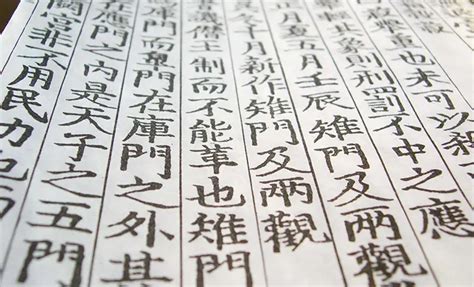 重也未可以殺
輕其象則刑罰不中之應
正月夏五月壬辰雉門及兩觀
冬十月新作雉門及兩觀
僭王制而不能革也雉門
門而皋門在庫門之外其
在應門之内是天子之五門
宮非不用民力也